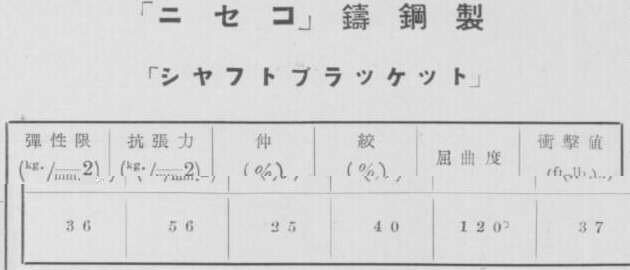 「ニセコ」鑄鋼製
「シヤフトブラッケット」
彈性限 抗張力 伸 絞 屈曲度 衝擊値
(kg./mm.2) (kg./mm.2) (%) (%)
36 56 25 40 120° 37